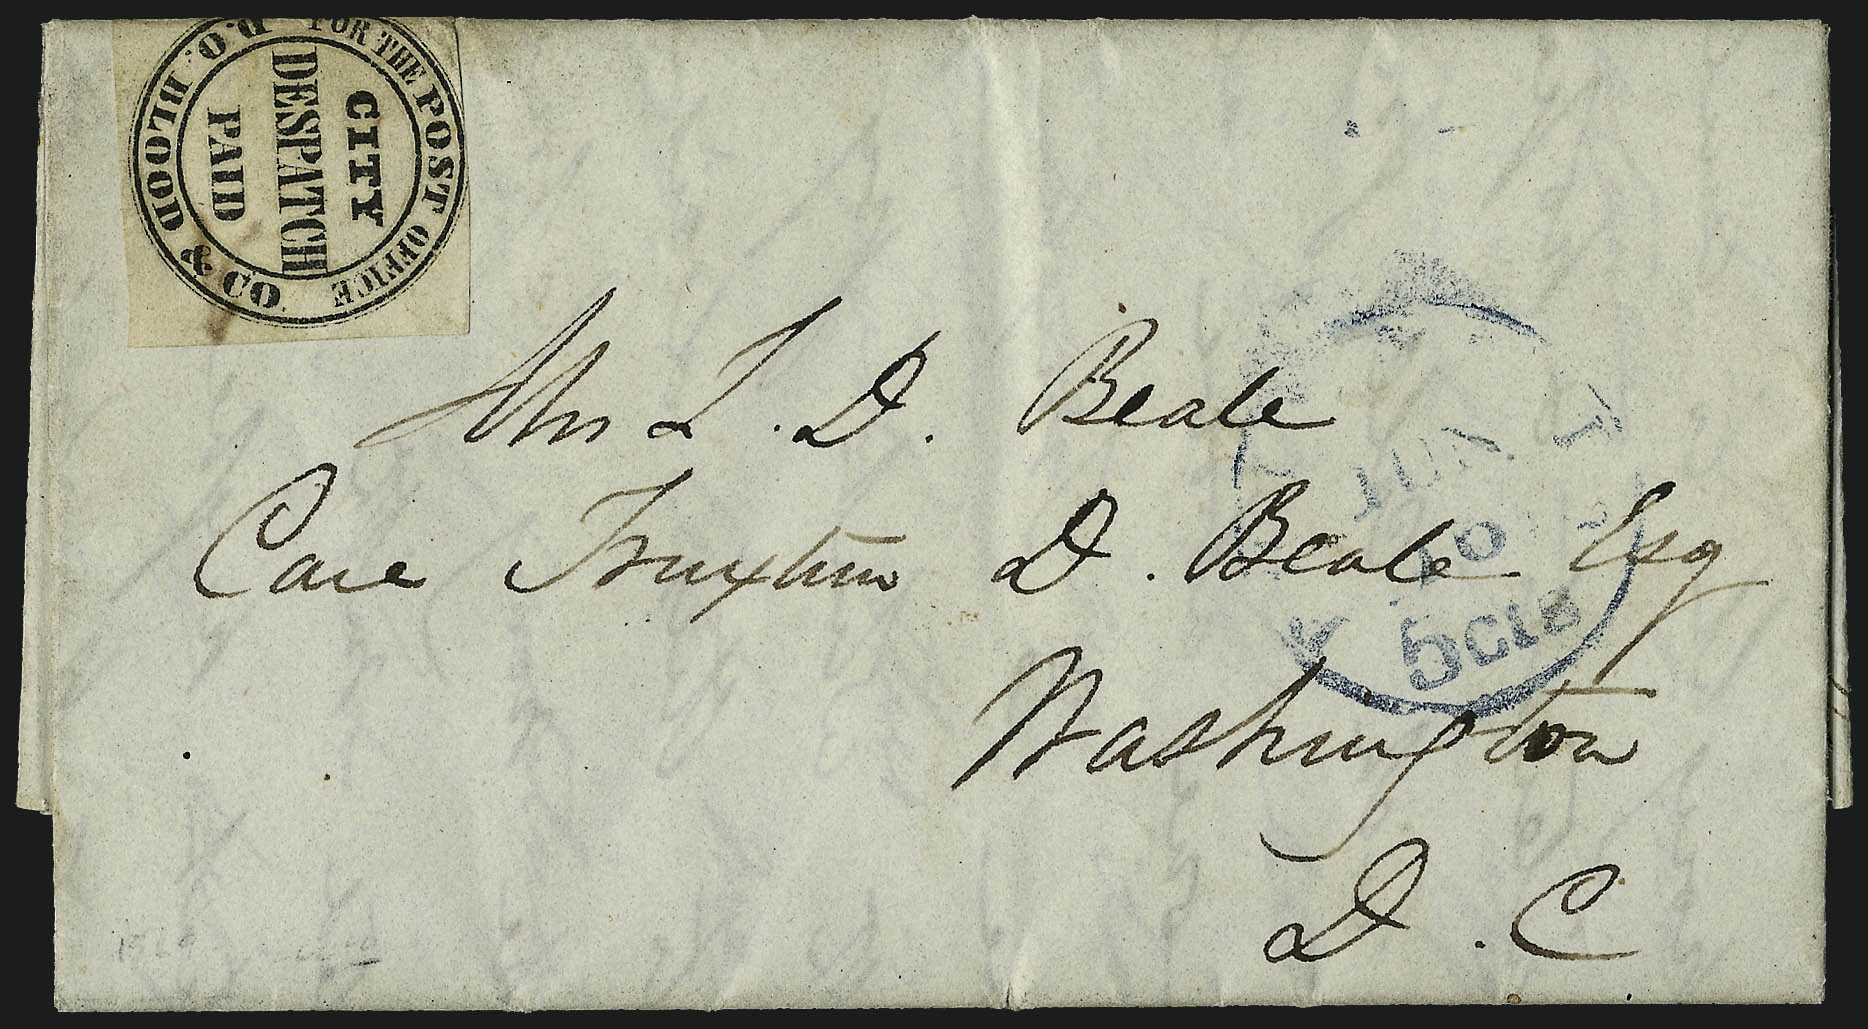 D.O. BLOOD & CO.
FOR THE POST OFFICE
CITY
DESPATCH
PAID
Mrs L. D. Beale
Care Truxtun D. Beale Esq
Washington
D. C
JUN
10
5cts